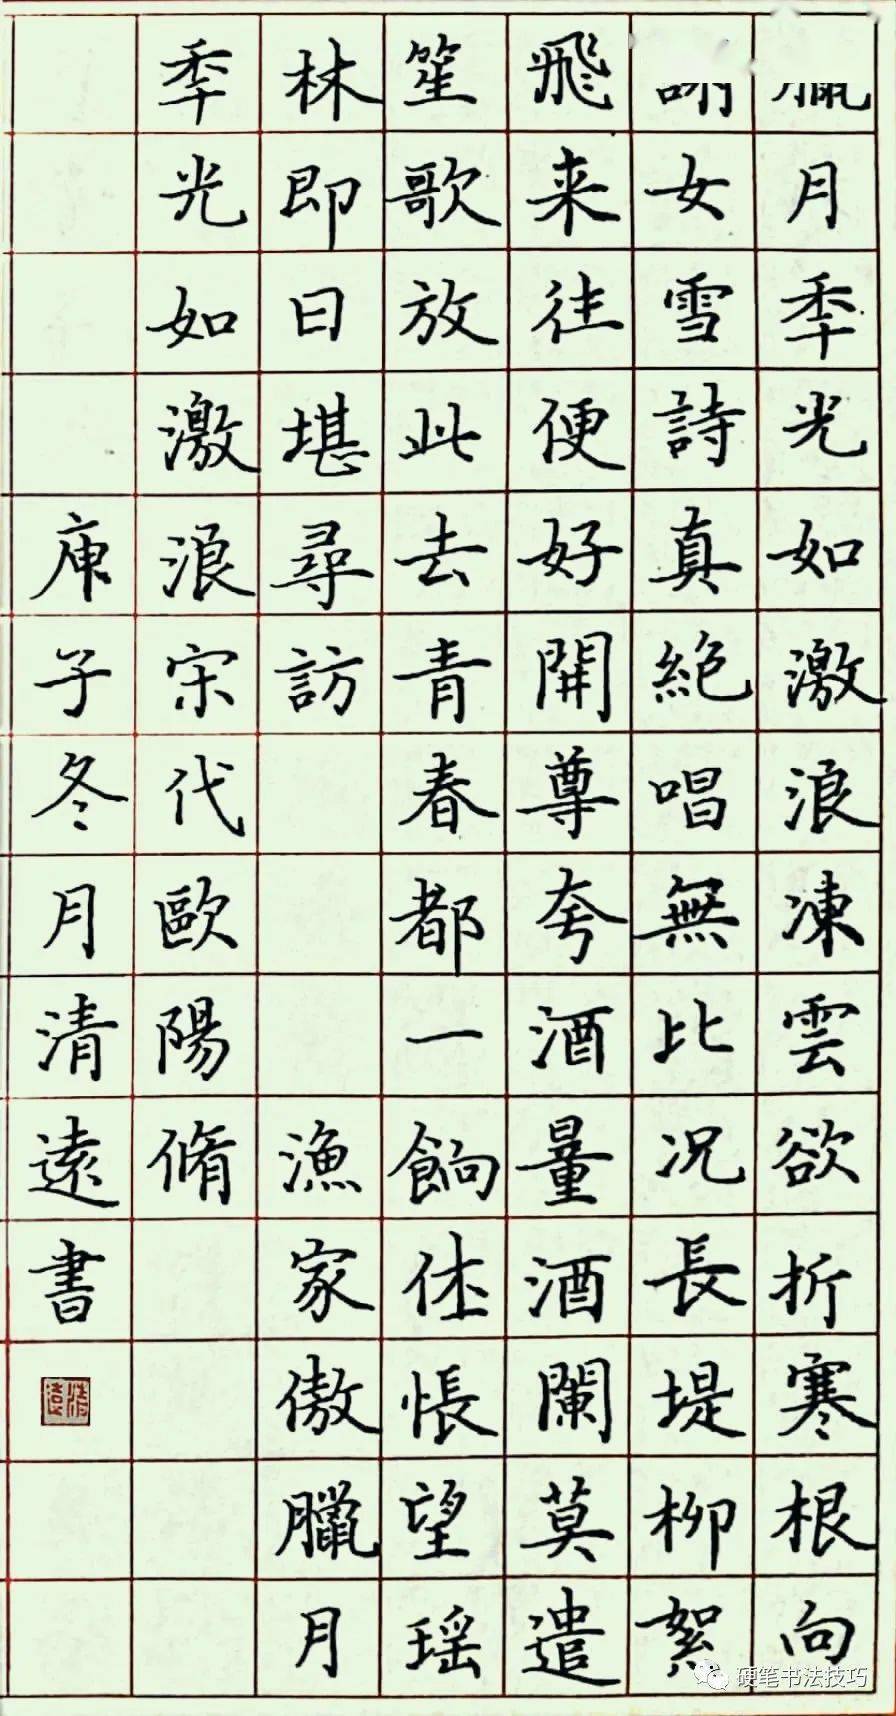 月秊光如激浪凍雲欲折寒根向
女雪詩真絶唱無比况長堤柳絮
飛来往便好開尊夸酒量酒闌莫遣
笙歌放此去青春都一餉休悵望瑶
林即日堪尋訪 漁家傲臘月
秊光如激浪宋代歐陽脩
庚子冬月清遠書
清遠
硬笔书法技巧